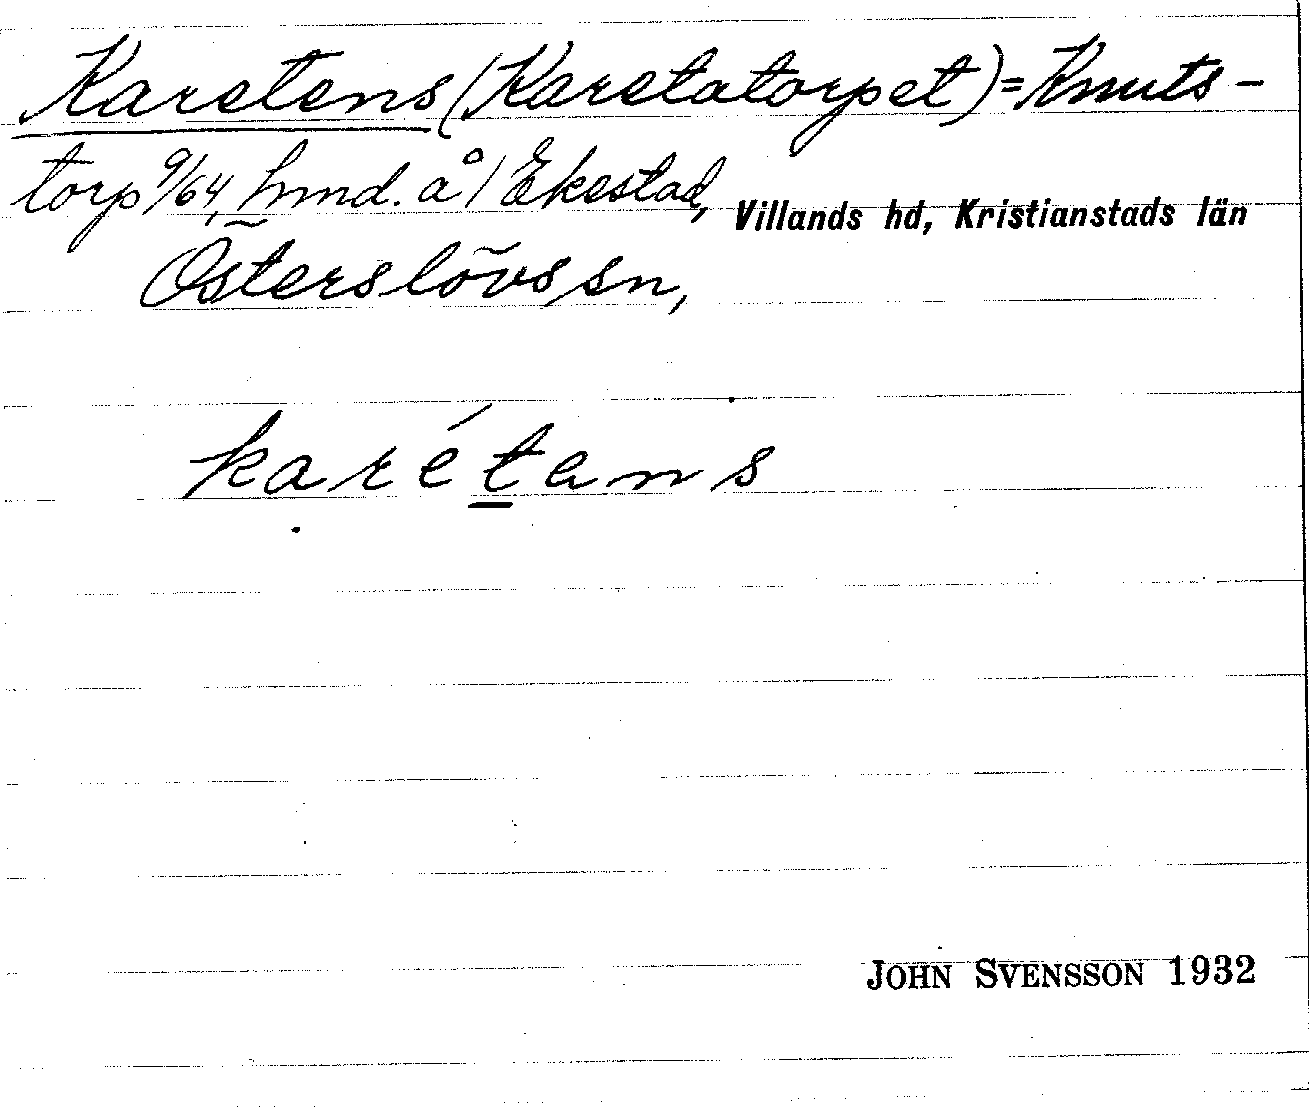 Karetens (Karetatorpet) = Knuts-
torp 9/64, hmd. å 1 Ekestad, Villands hd, Kristianstads län
Österslövs sn,
karétans
JOHN SVENSSON 1932